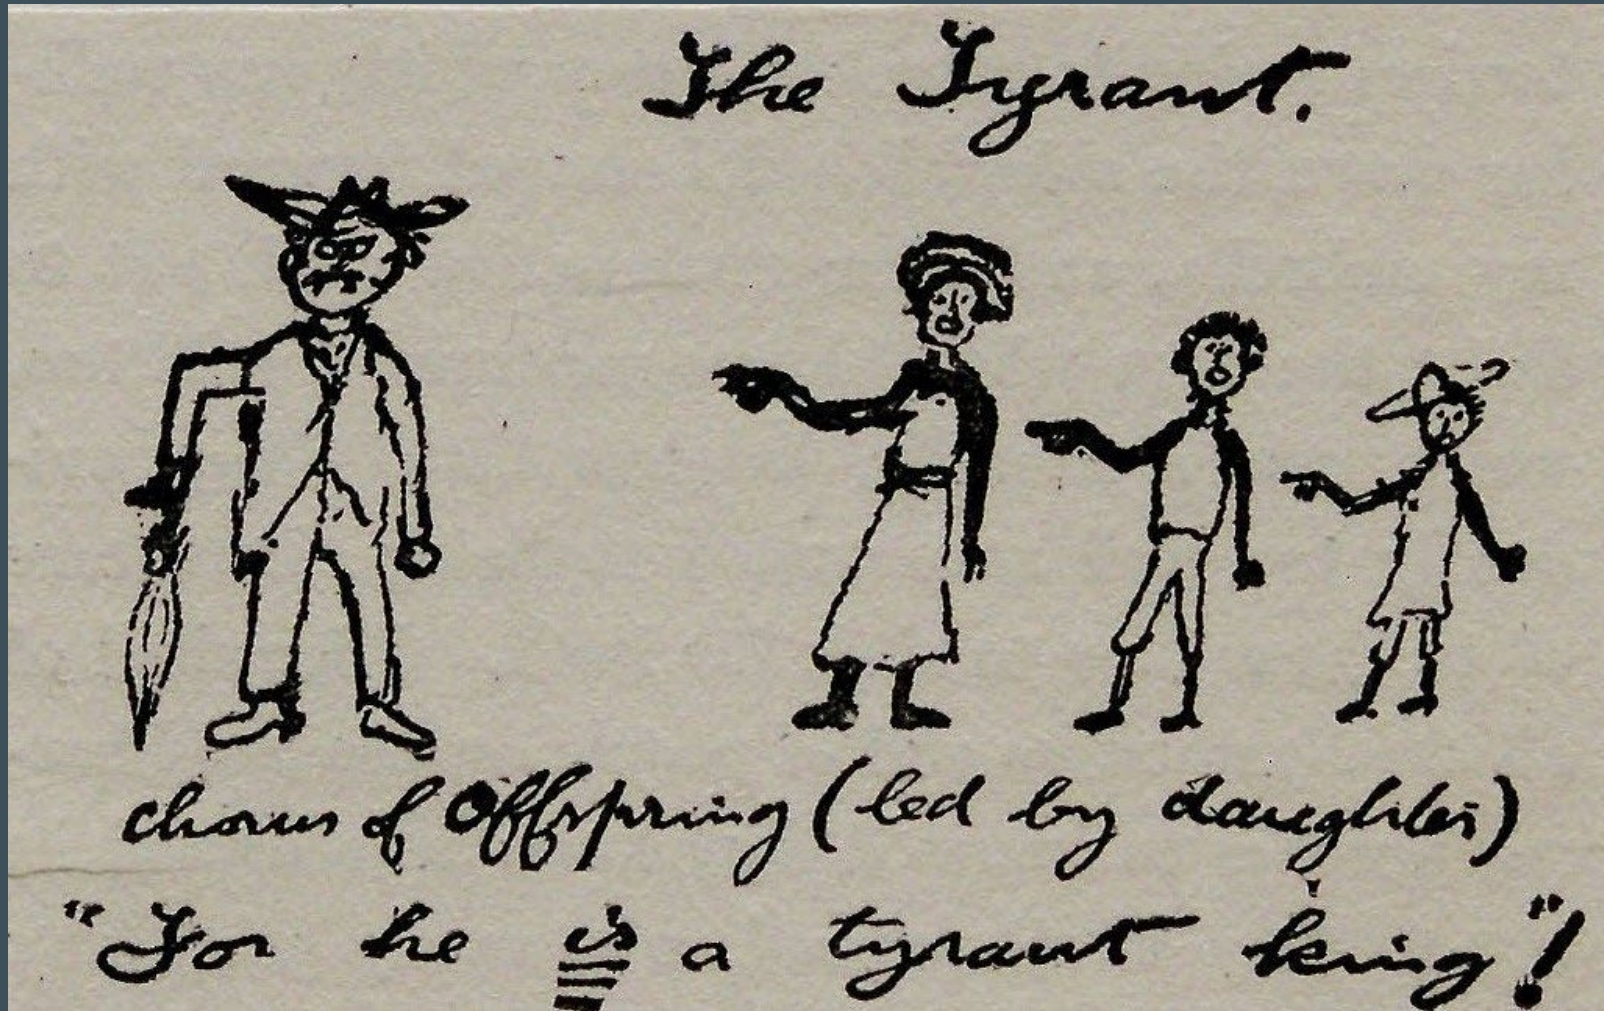 The Tyrant.
chorus of Offspring (led by daughter)
"For he is a tyrant king"!